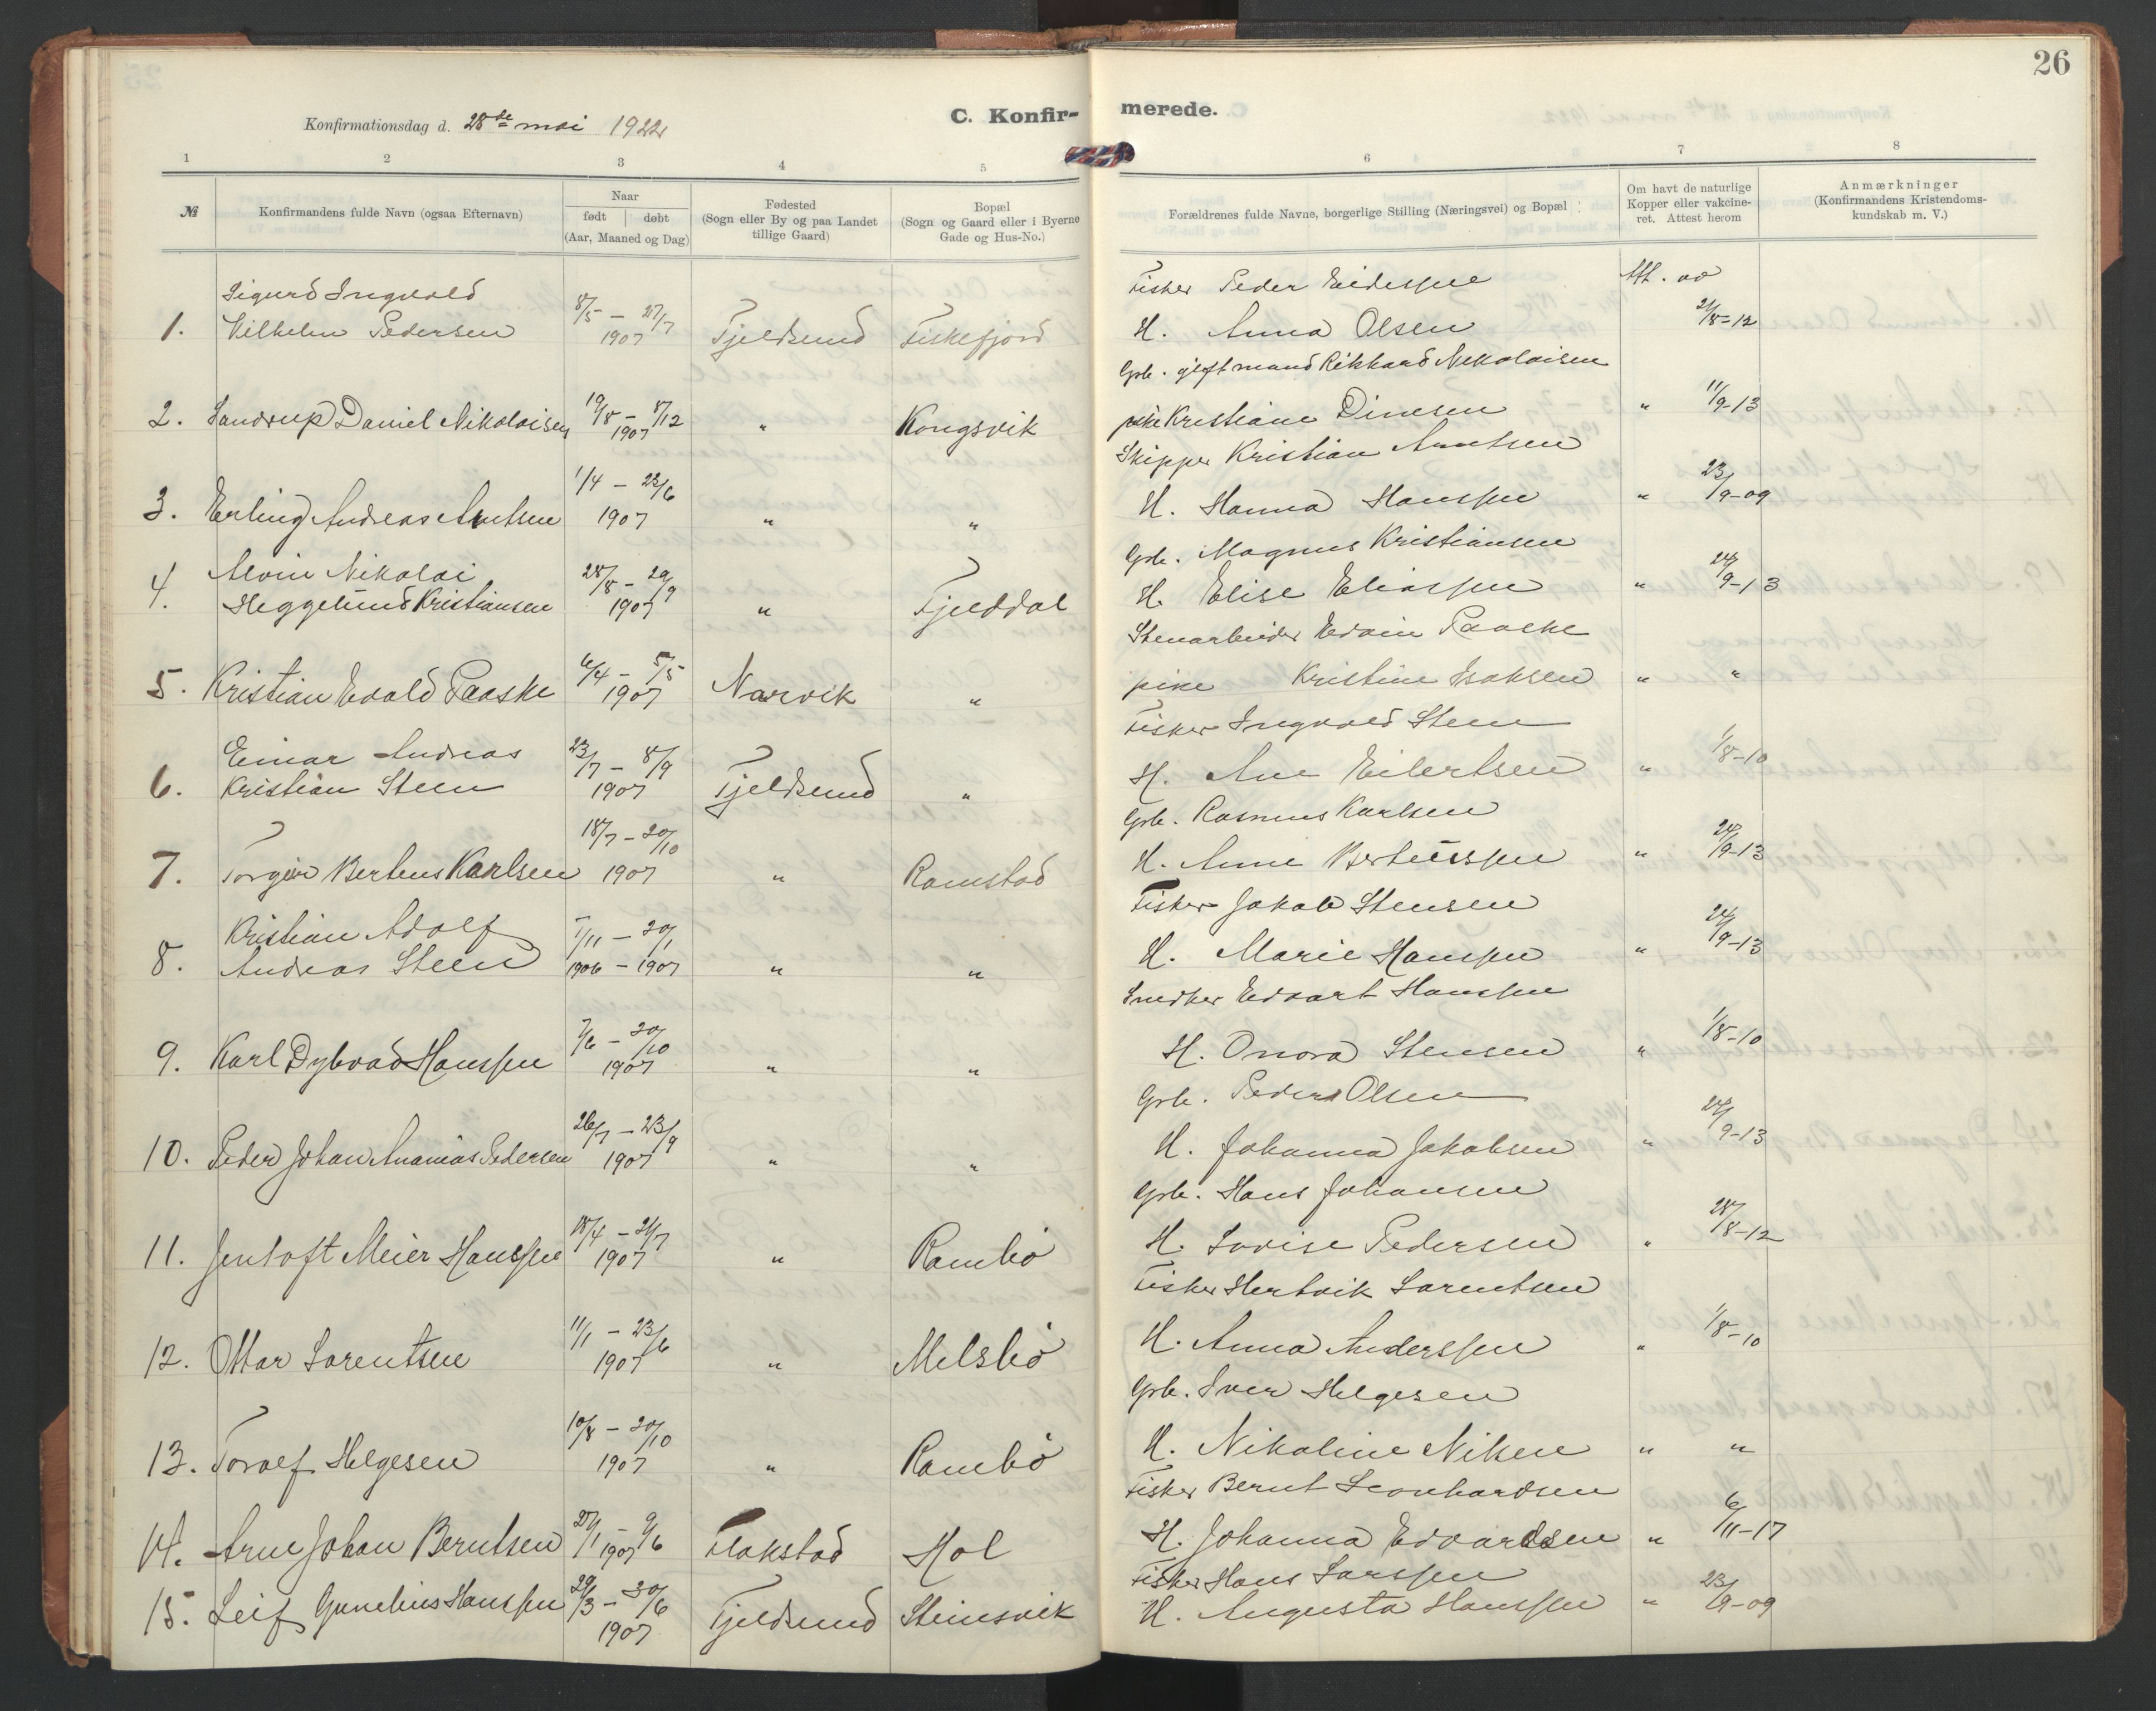 26
Konfirmationsdag d. 28de mai 1922
C. Konfir- merede.
1 2 3 4 5 6 7 8
№
Konfirmandens fulde Navn (ogsaa Efternavn)
Naar
født | døbt
(Aar, Maaned og Dag)
Fødested
(Sogn eller By og paa Landet
tillige Gaard)
Bopæl
(Sogn og Gaard eller i Byerne
Gade og Hus-No.)
Forældrenes fulde Navne, borgerlige Stilling (Næringsvei) og Bopæl
Om havt de naturlige
Kopper eller vakcine-
ret. Attest herom
Anmærkninger
(Konfirmandens Kristendoms-
kundskab m. V.)
Sigurd Ingvald
1. Vilhelm Pedersen 8/5 - 27/7 1907 Fjeldsund Fiskefjord
Fisker Peder Eidessen Att. av
H. Anna Olsen 21/8-12
2. Sandrup Daniel Nikolaisen 19/8 - 8/12 1907 " Kongsvik
Grb. gift mand Rikhard Nikolaisen
pike Kristiane Dinesen " 11/9-13
3. Erling Andreas Arntsen 1/4 - 23/6 1907 " "
Skipper Kristian Arntsen
H. Hanna Hanssen " 23/9-09
Alvin Nikolai
4. Heggelund Kristiansen 28/8 - 29/9 1907 " Fjelddal
Grb. Magnus Kristiansen
H. Elise Eliassen " 24/9-13
5. Kristian Evald Paaske 6/4 - 5/5 1907 Narvik "
Stenarbeider Edvin Paaske
pike Kristine Isaksen " "
Einar Andreas
6. Kristian Steen 23/7 - 8/9 1907 Fjeldsund "
Fisker Ingvald Steen
H. Ane Eilertsen " 1/8-10
7. Torgeir Berteus Karlsen 18/7 - 20/10 1907 " Ramstad
Grb. Rasmus Karlsen
H. Anne Berteussen " 24/9-13
Kristian Adolf
8. Andreas Steen 5/11 - 20/1 1906 - 1907 " "
Fisker Jakob Stensen
H. Marie Hanssen " 24/9-13
9. Karl Dybvad Hanssen 7/6 - 20/10 1907 " "
Snedker Edvart Hanssen
H. Onora Stensen " 1/8-10
10. Peder Johan Ananias Pedersen 26/7 - 23/9 1907 " "
Grb. Peder Olsen
H. Johanna Jakobsen " 24/9-13
11. Jentoft Meier Hanssen 18/4 - 21/7 1907 " Rambö
Grb. Hans Johansen
H. Lovise Pedersen " 28/8-12
12. Ottar Lorentsen 11/1 - 23/6 1907 " Melsbö
Fisker Hertvik Lorentsen
H. Anna Anderssen " 1/8-10
13. Torolf Helgesen 10/8 - 20/10 1907 " Rambö
Grb. Iver Helgesen
H. Nikoline Nilsen " "
14. Arne Johan Berntsen 27/1 - 9/6 1907 Flakstad Hol
Fisker Bernt Leonhardsen
H. Johanna Edvardsen " 6/11-17
15. Leif Gunelius Hanssen 29/3 - 30/6 1907 Fjeldsund Steinsvik
Fisker Hans Larssen
H. Augusta Hanssen " 23/9-09